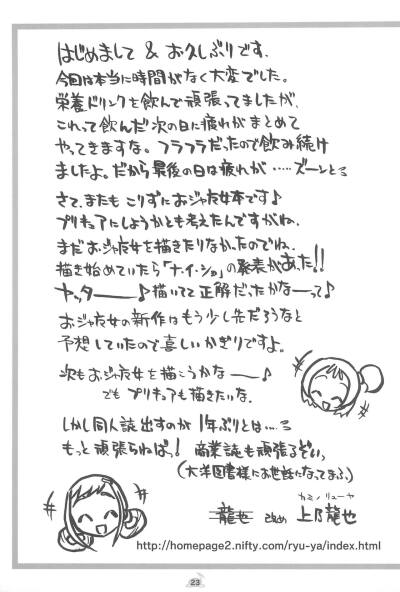 はじめまして & お久しぶりです。
今回は本当に時間がなく大変でした。
栄養ドリンクを飲んで頑張ってましたが、
これって飲んだ次の日に疲れがまとめて
やってきますな。フラフラだったので飲み続け
ましたよ。だから最後の日は疲れが……ズーンとろ
さて、またもこりずにおジャ女本です♪
プリキュアにしようかとも考えたんですがね、
まだおジャ女を描きたりなかったのでね、
描き始めていたら「ナ・イ・ショ」の発表があった!!
ヤッター――♪描いてて正解だったかなーって♪
おジャ女の新作はもう少し先だろうなと
予想していたので喜しいかぎりですよ。
次もおジャ女を描こうかな――♪
でもプリキュアも描きたいな。
しかし同人誌出すのが1年ぶりとは…
もっと頑張らねばっ!商業誌も頑張るぞいっ
(大洋図書様にお世話になってまふ)
カミノリューヤ
龍也 改め 上乃龍也
http://homepage2.nifty.com/ryu-ya/index.html
23